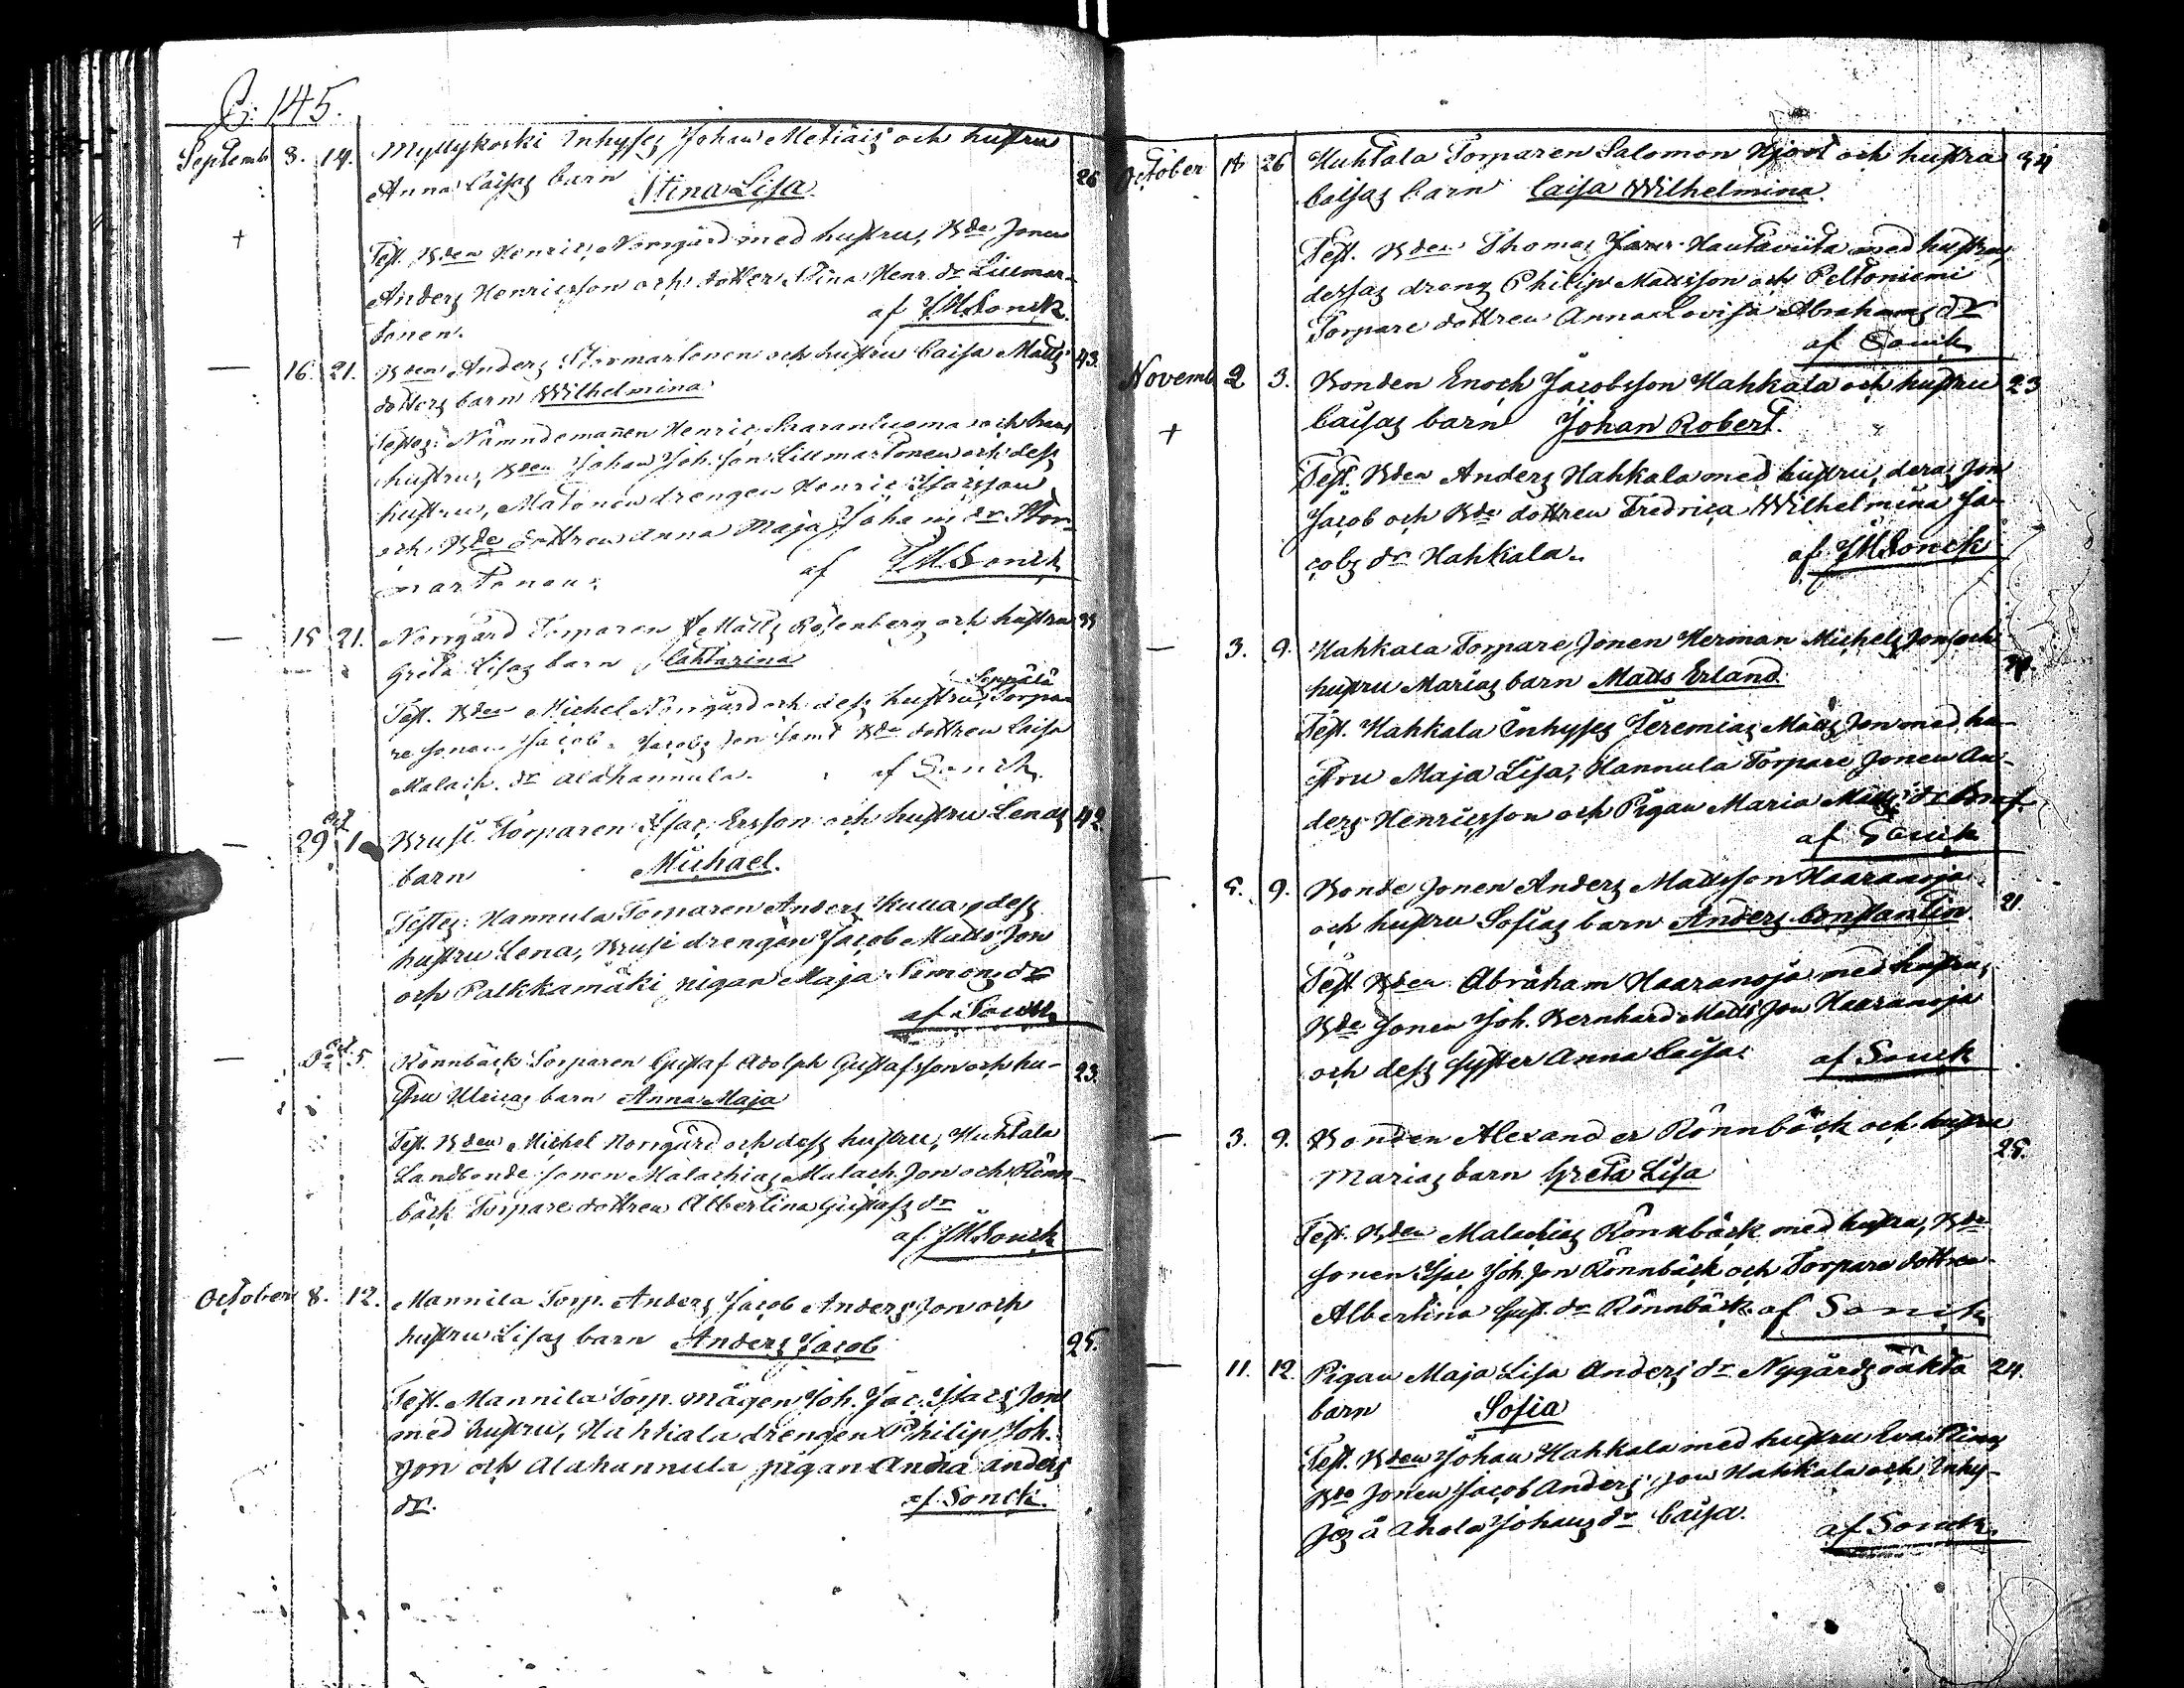 145.
Septemb 3. 14. Myllykoski Inhyses Johan Metiäis och hustru 26
Anna Caisas barn Stina Lisa.
Test. Bden Henric Norrgård med hustru, Bde sonen
Anders Henricsson och dotter Stina Henr. dr Lillmar-
tonen. af JMSonck.
16. 21. Bden Anders Stormartonen och hustru Caisa Matts 43.
dotters barn Wilhelmina
Testes: Nämndemannen Henric Saaranluoma och hans
hustru, Bden Johan Joh. son Lillmartonen och dess
hustru, Matonen drengen Henric Isacsson
och Bde dottren Anna Maja Johans dr Stor-
martonen. af JMSonck
15 21. Norrgård Torparen Matts Rosenberg och hustru 39
Greta Lisas barn Cathrina
Test. Bden Michel Norrgård och dess hustru, Seppälä Torpa-
re sonen Jacob Jacobs son samt Bde dottren Caisa
Malach. dr Alahannula. af Sonck.
29 Oct 1 Brusi Torparen Isac Ersson och hustru Lenas 42
barn Michael.
Testes: Hannula Torparen Anders Kuua, dess
hustru Lena, Brusi drengen Jacob Matts son
och Palkkamäki pigan Maja Simons dr
af Sonck
Oct. 5. Rönnbäck Torparen Gustaf Adolph Gustafsson och hu- 23.
stru Ulricas barn Anna Maja
Test. Bden Michel Norrgård och dess hustru, Huhtala
Landbonde sonen Malachias Malach. son och Rönn-
bäck Torpare dottren Albertina Gustafs dr
af JMSonck
October 8. 12. Mannila Torp. Anders Jacob Anders son och
hustru Lisas barn Anders Jacob 25.
Test. Mannila Torp. mågen Joh. Jac. Isacs son
med hustru, Hahkala drengen Philip Joh.
son och Alahannula pigan Anna Anders
dr. af Sonck.
October 18 26 Huhtala Torparen Salomon Hjort och hustru 34
Caisas barn Caisa Wilhelmina.
Test. Bden Thomas Hautaviita med hustru
dessas dreng Philip Mattsson och Peltoniemi
Torpare dottren Anna Lovisa Abrahams dr
af Sonck
Novemb 2 3. Bonden Enoch Jacobsson Hahkala och hustru 23
Caisas barn Johan Robert.
Test. Bden Anders Hahkala med hustru, deras son
Jacob och Bde dottren Fredrica Wilhelmina Ja-
cobs dr Hahkala. af JMSonck
3. 9. Hahkala Torpare sonen Herman Michels son och
hustru Marias barn Matts Erland
Test. Hahkala Inhyses Jeremias Matts son med hu-
stru Maja Lisa, Hannula Torpare sonen An-
ders Henricsson och Pigan Maria Matts dr
af Sonck
5. 9. Bonde sonen Anders Mattsson Haaranoja 21
och hustru Sofias barn Anders Constantin
Test Bden Abraham Haaranoja med hustru,
Bde sonen Joh. Bernhard Matts son Haaranoja
och dess syster Anna Caisa. af Sonck
3. 9. Bonden Alexander Rönnbäck och hustru
Marias barn Greta Lisa 25.
Test. Bden Malachias Rönnbäck med hustru, Bde
sonen Isac Joh. son Rönnbäck och Torpare dottren
Albertina Gust. dr Rönnbäck. af Sonck
11. 12. Pigan Maja Lisa Anders dr Nygårds oäkta 24.
barn Sofia
Test. Bden Johan Hahkala med hustru Eva Stina
Bde sonen Jacob Anders son Hahkala och Inhy-
ses å Ahola Johans dr Caisa. af Sonck.